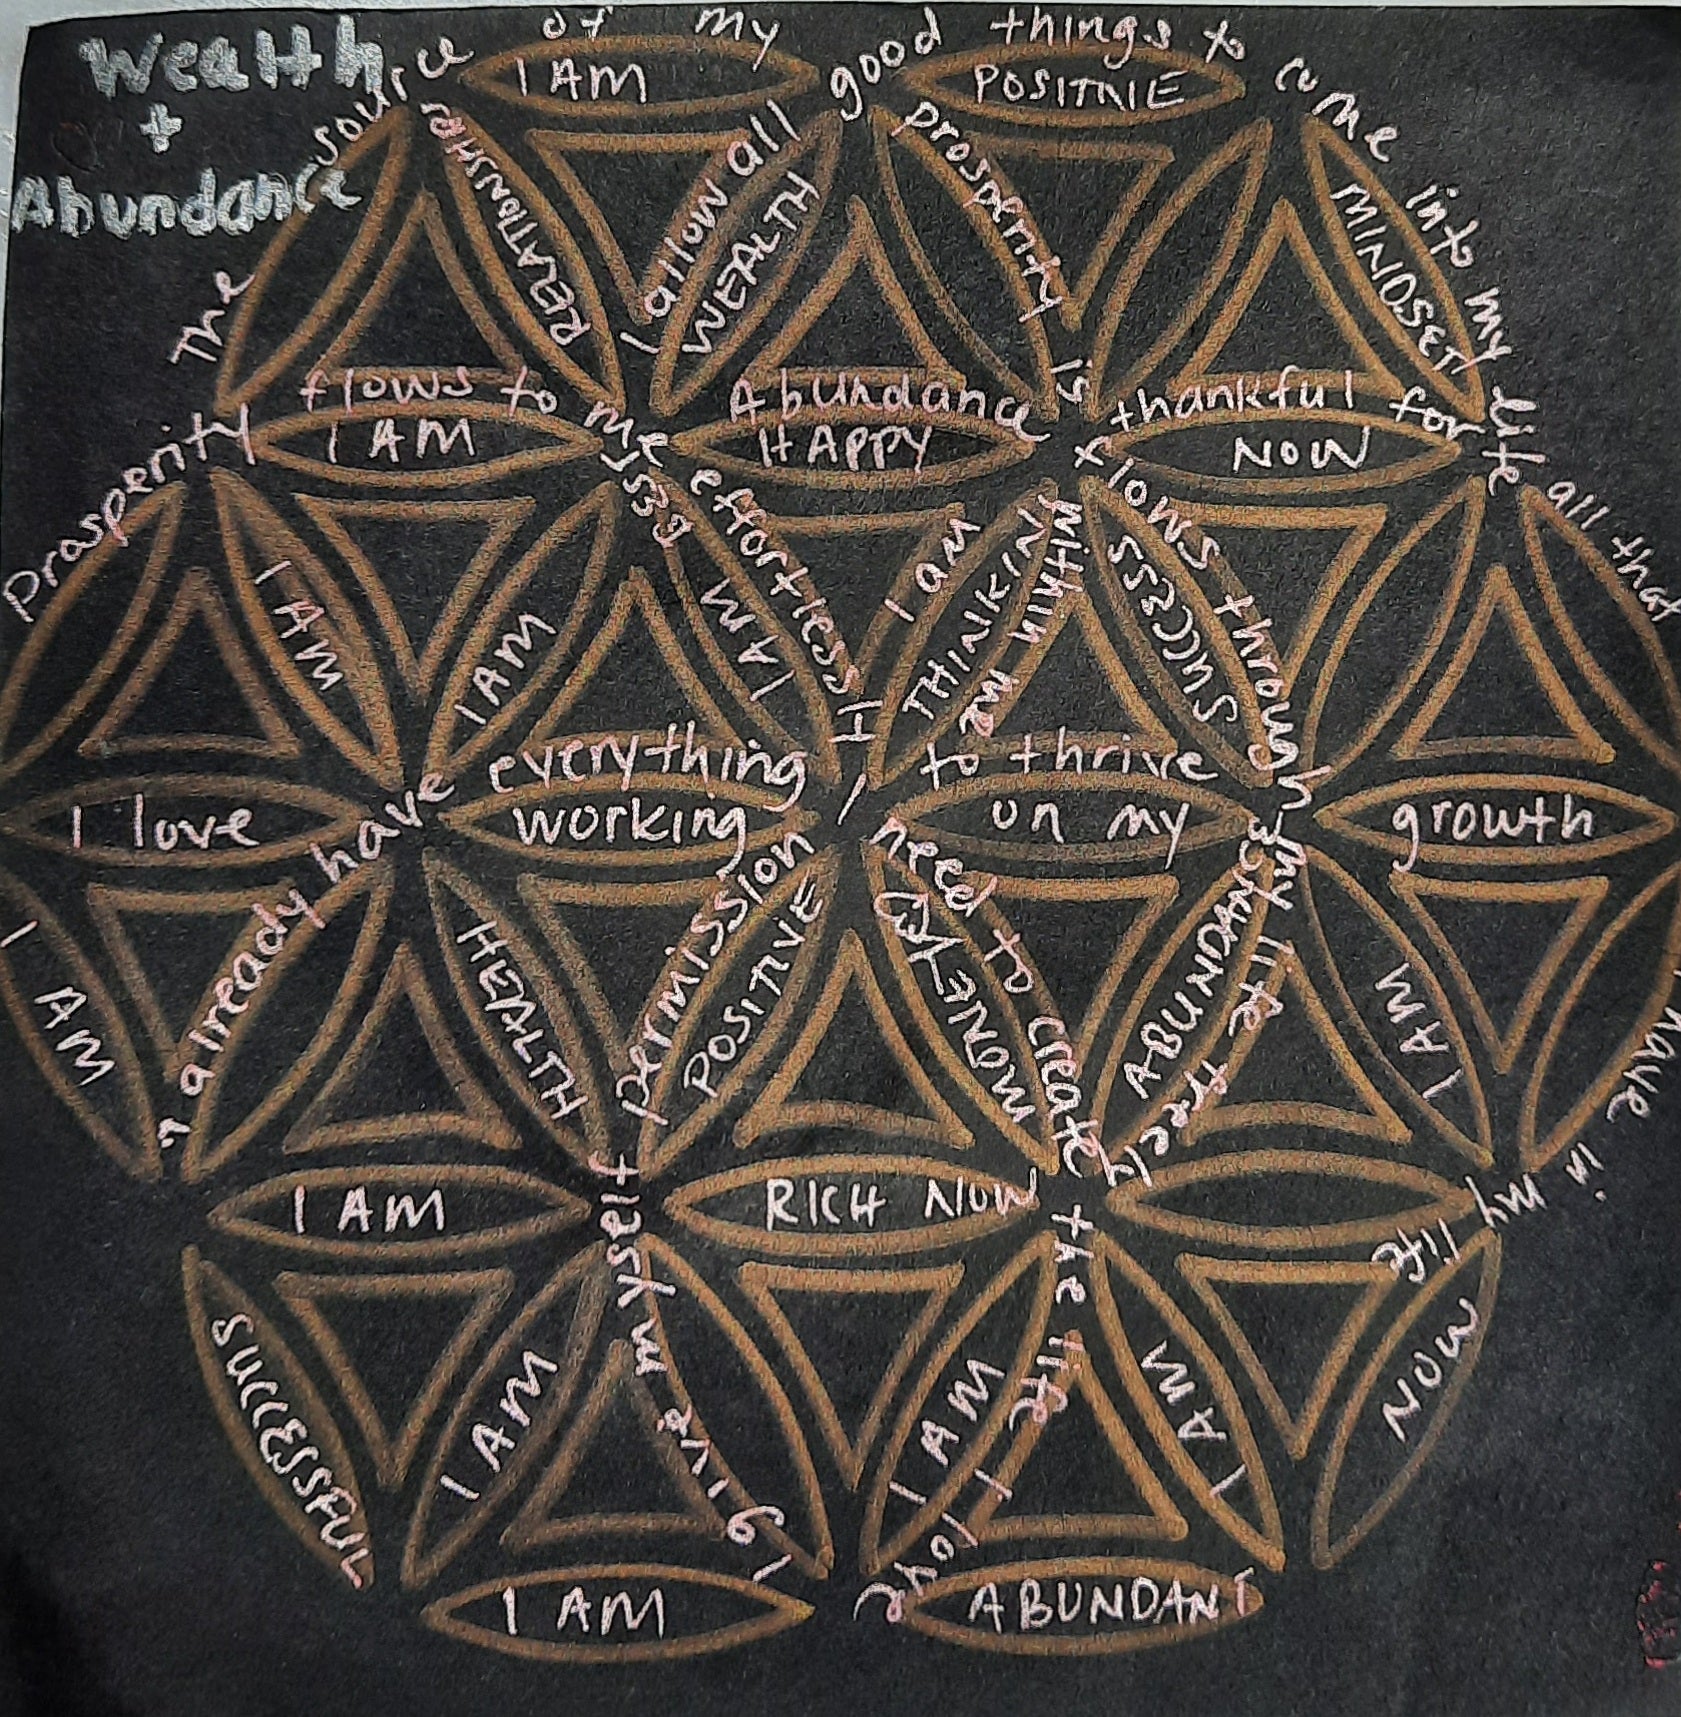 Wealth
+
Abundance
The source of my
I AM
good things to come into my life
POSITIVE
RELATIONSHIP
I allow all
WEALTH
prosperity is
MINDSET
Prosperity flows to me effortlessly
I AM
Abundance
HAPPY
flows through my life freely
thankful for all that
NOW
I AM
I AM
BLESSED
I AM
I am
THINKING
within me
SUCCESS
I already have everything
I love
working
I
to thrive
on my
growth
I AM
HEALTH
I give myself permission
POSITIVE
need to create the life I love
MONEY
ABUNDANCE
I AM
I have in my life
I AM
RICH NOW
SUCCESSFUL
I AM
I AM
I AM
NOW
I AM
ABUNDANT